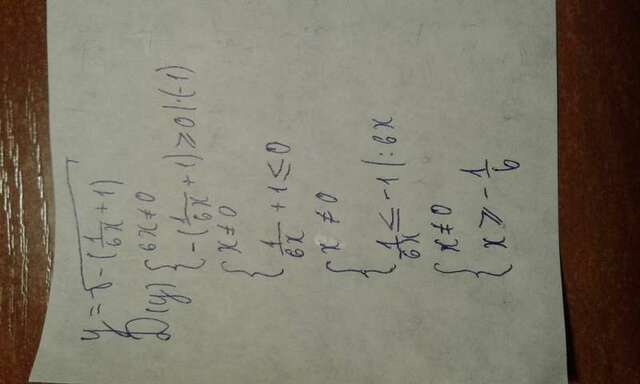 y = √-(1/6x + 1)
D(y) { 6x ≠ 0
-(1/6x + 1) ≥ 0 | · (-1)
{ x ≠ 0
1/6x + 1 ≤ 0
{ x ≠ 0
1/6x ≤ -1 | : 6x
{ x ≠ 0
x ≥ - 1/6